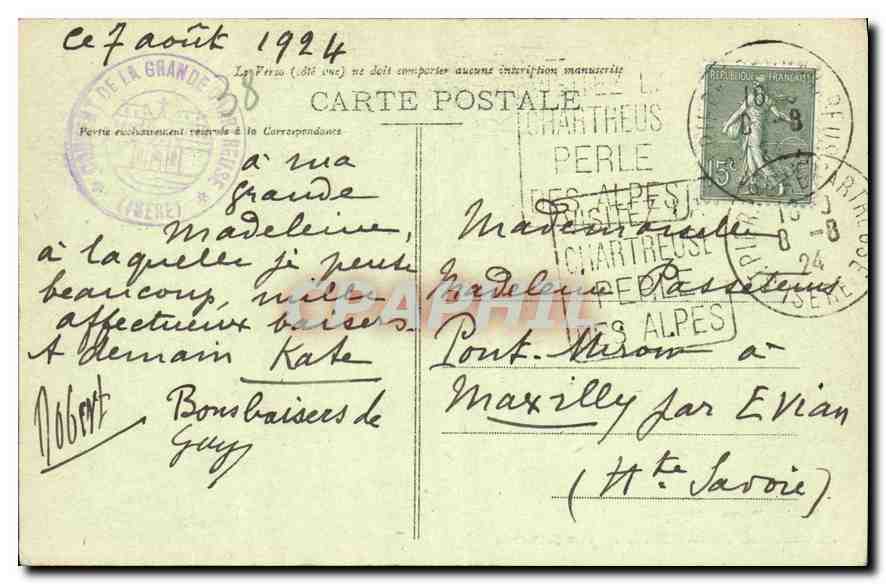 ce 7 août 1924
Le Verso (côté vue) ne doit comporter aucune inscription manuscrite
CARTE POSTALE
Partie exclusivement réservée à la Correspondance
COUVENT DE LA GRANDE CHARTREUSE
(ISÈRE)
38
à ma
grande
Madeleine,
à laquelle je pense
beaucoup, mille
affectueux baisers.
A demain Kate
Bons baisers de
Guy
REPUBLIQUE FRANÇAISE
15c
CHARTREUS
PERLE
DES ALPES
VISITEZ LA
CHARTREUSE
PERLE
DES ALPES
CHARTREUSE
8 -8
24
ISERE
Mademoiselle
Madeleine Passetemps
à
Maxilly par Evian
(Hte Savoie)
CPAPHIL